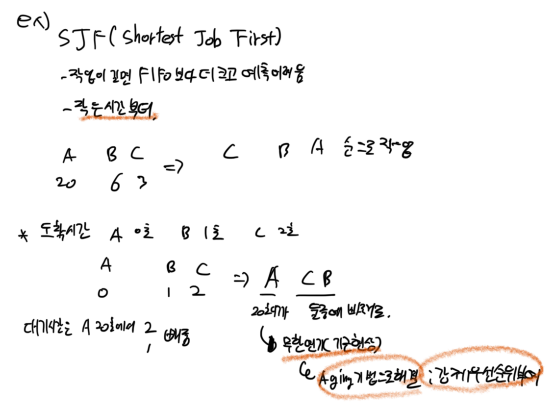 ex)
SJF(Shortest Job First)
-작업이 길면 FIFO보다 더 크고 예측어려움
-작은시간부터.
A B C => C B A 순으로 작업
20 6 3
* 도착시간 A 0초 B 1초 C 2초
A B C => A C B
0 1 2 20초대기 둘중에 비교로.
대기시간은 A 20초에서 2 빼줌
1
무한연기(기아현상)
Aging기법으로해결 ; 강제우선순위부여